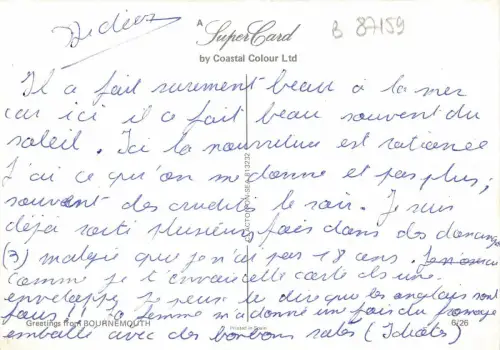 Didier
A SuperCard
by Coastal Colour Ltd
B 87159
Il a fait surement beau à la mer
car ici il a fait beau souvent du
soleil. Ici la nourriture est rationée
J'ai ce qu'on me donne et pas plus,
souvent des crudités le soir. Je suis
déjà sorti plusieurs fois dans des dancings
(3) malgré que je n'ai pas 18 ans.
comme je t'envoie cette carte ds une
enveloppe je peux te dire que les anglais sont
fous!! La femme m'a donné une fois du fromage
emballé avec des bonbons salés (Idiots)
Greetings from BOURNEMOUTH
Printed in Spain
6/26